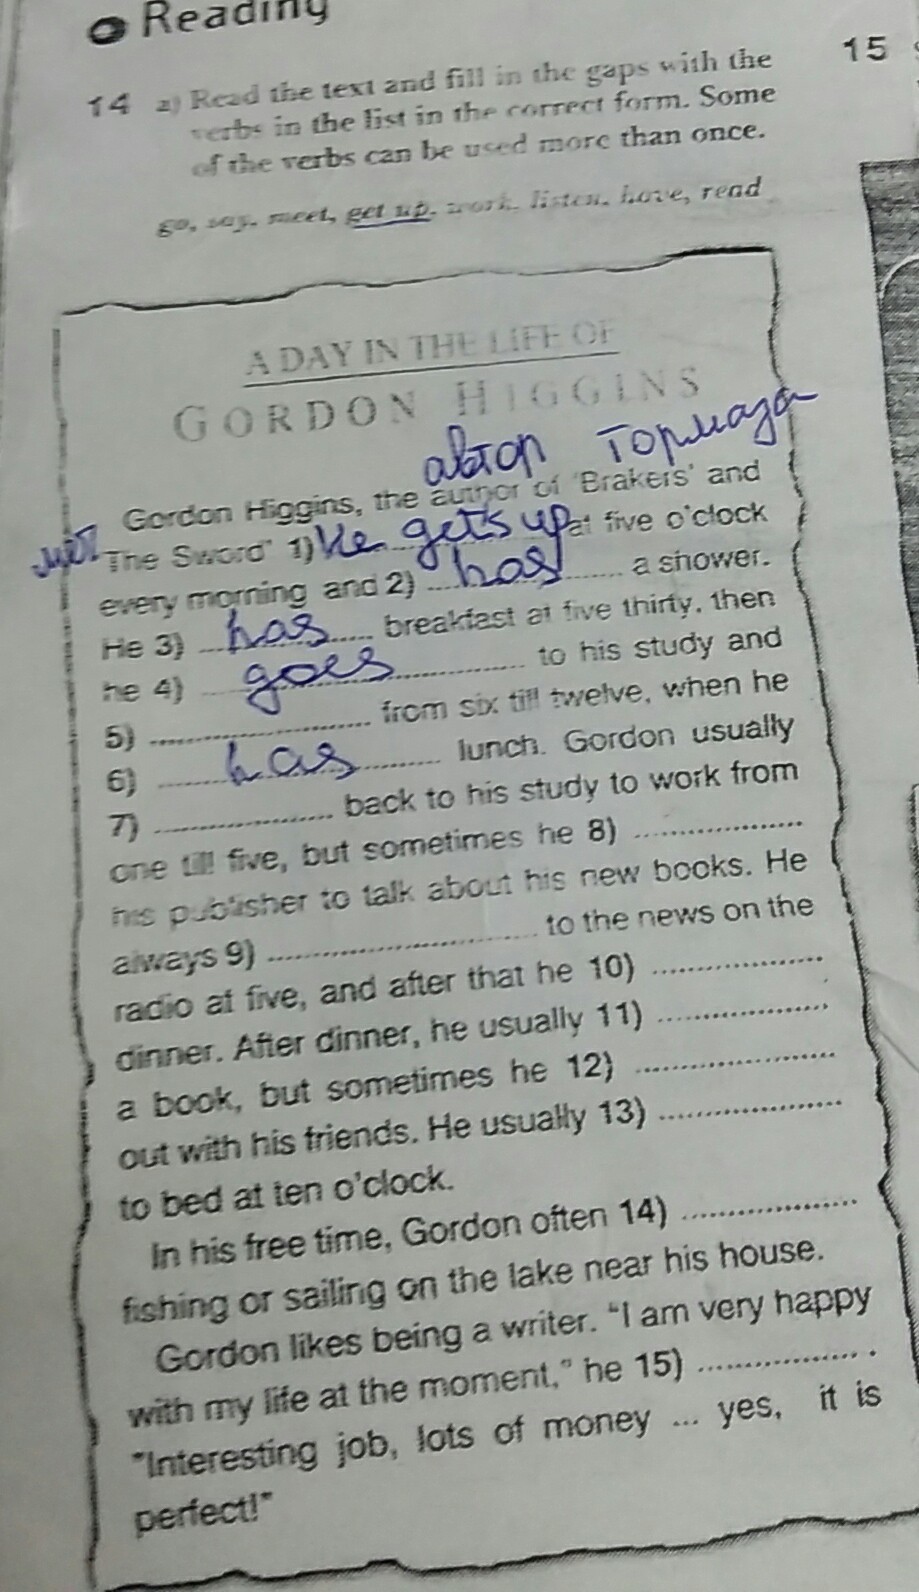 Reading
15
14 a) Read the text and fill in the gaps with the
verbs in the list in the correct form. Some
of the verbs can be used more than once.
go, say, meet, get up, work, listen, have, read
A DAY IN THE LIFE OF
GORDON HIGGINS
автор Тормаза
Gordon Higgins, the author of 'Brakers' and
меч The Sword' 1) He gets up at five o'clock
every morning and 2) has a shower.
He 3) has breakfast at five thirty, then
he 4) goes to his study and
5) .................... from six till twelve, when he
6) has lunch. Gordon usually
7) .................... back to his study to work from
one till five, but sometimes he 8) ....................
his publisher to talk about his new books. He
always 9) .................... to the news on the
radio at five, and after that he 10) ....................
dinner. After dinner, he usually 11) ....................
a book, but sometimes he 12) ....................
out with his friends. He usually 13) ....................
to bed at ten o'clock.
In his free time, Gordon often 14) ....................
fishing or sailing on the lake near his house.
Gordon likes being a writer. "I am very happy
with my life at the moment," he 15) .................... .
"Interesting job, lots of money ... yes, it is
perfect!"